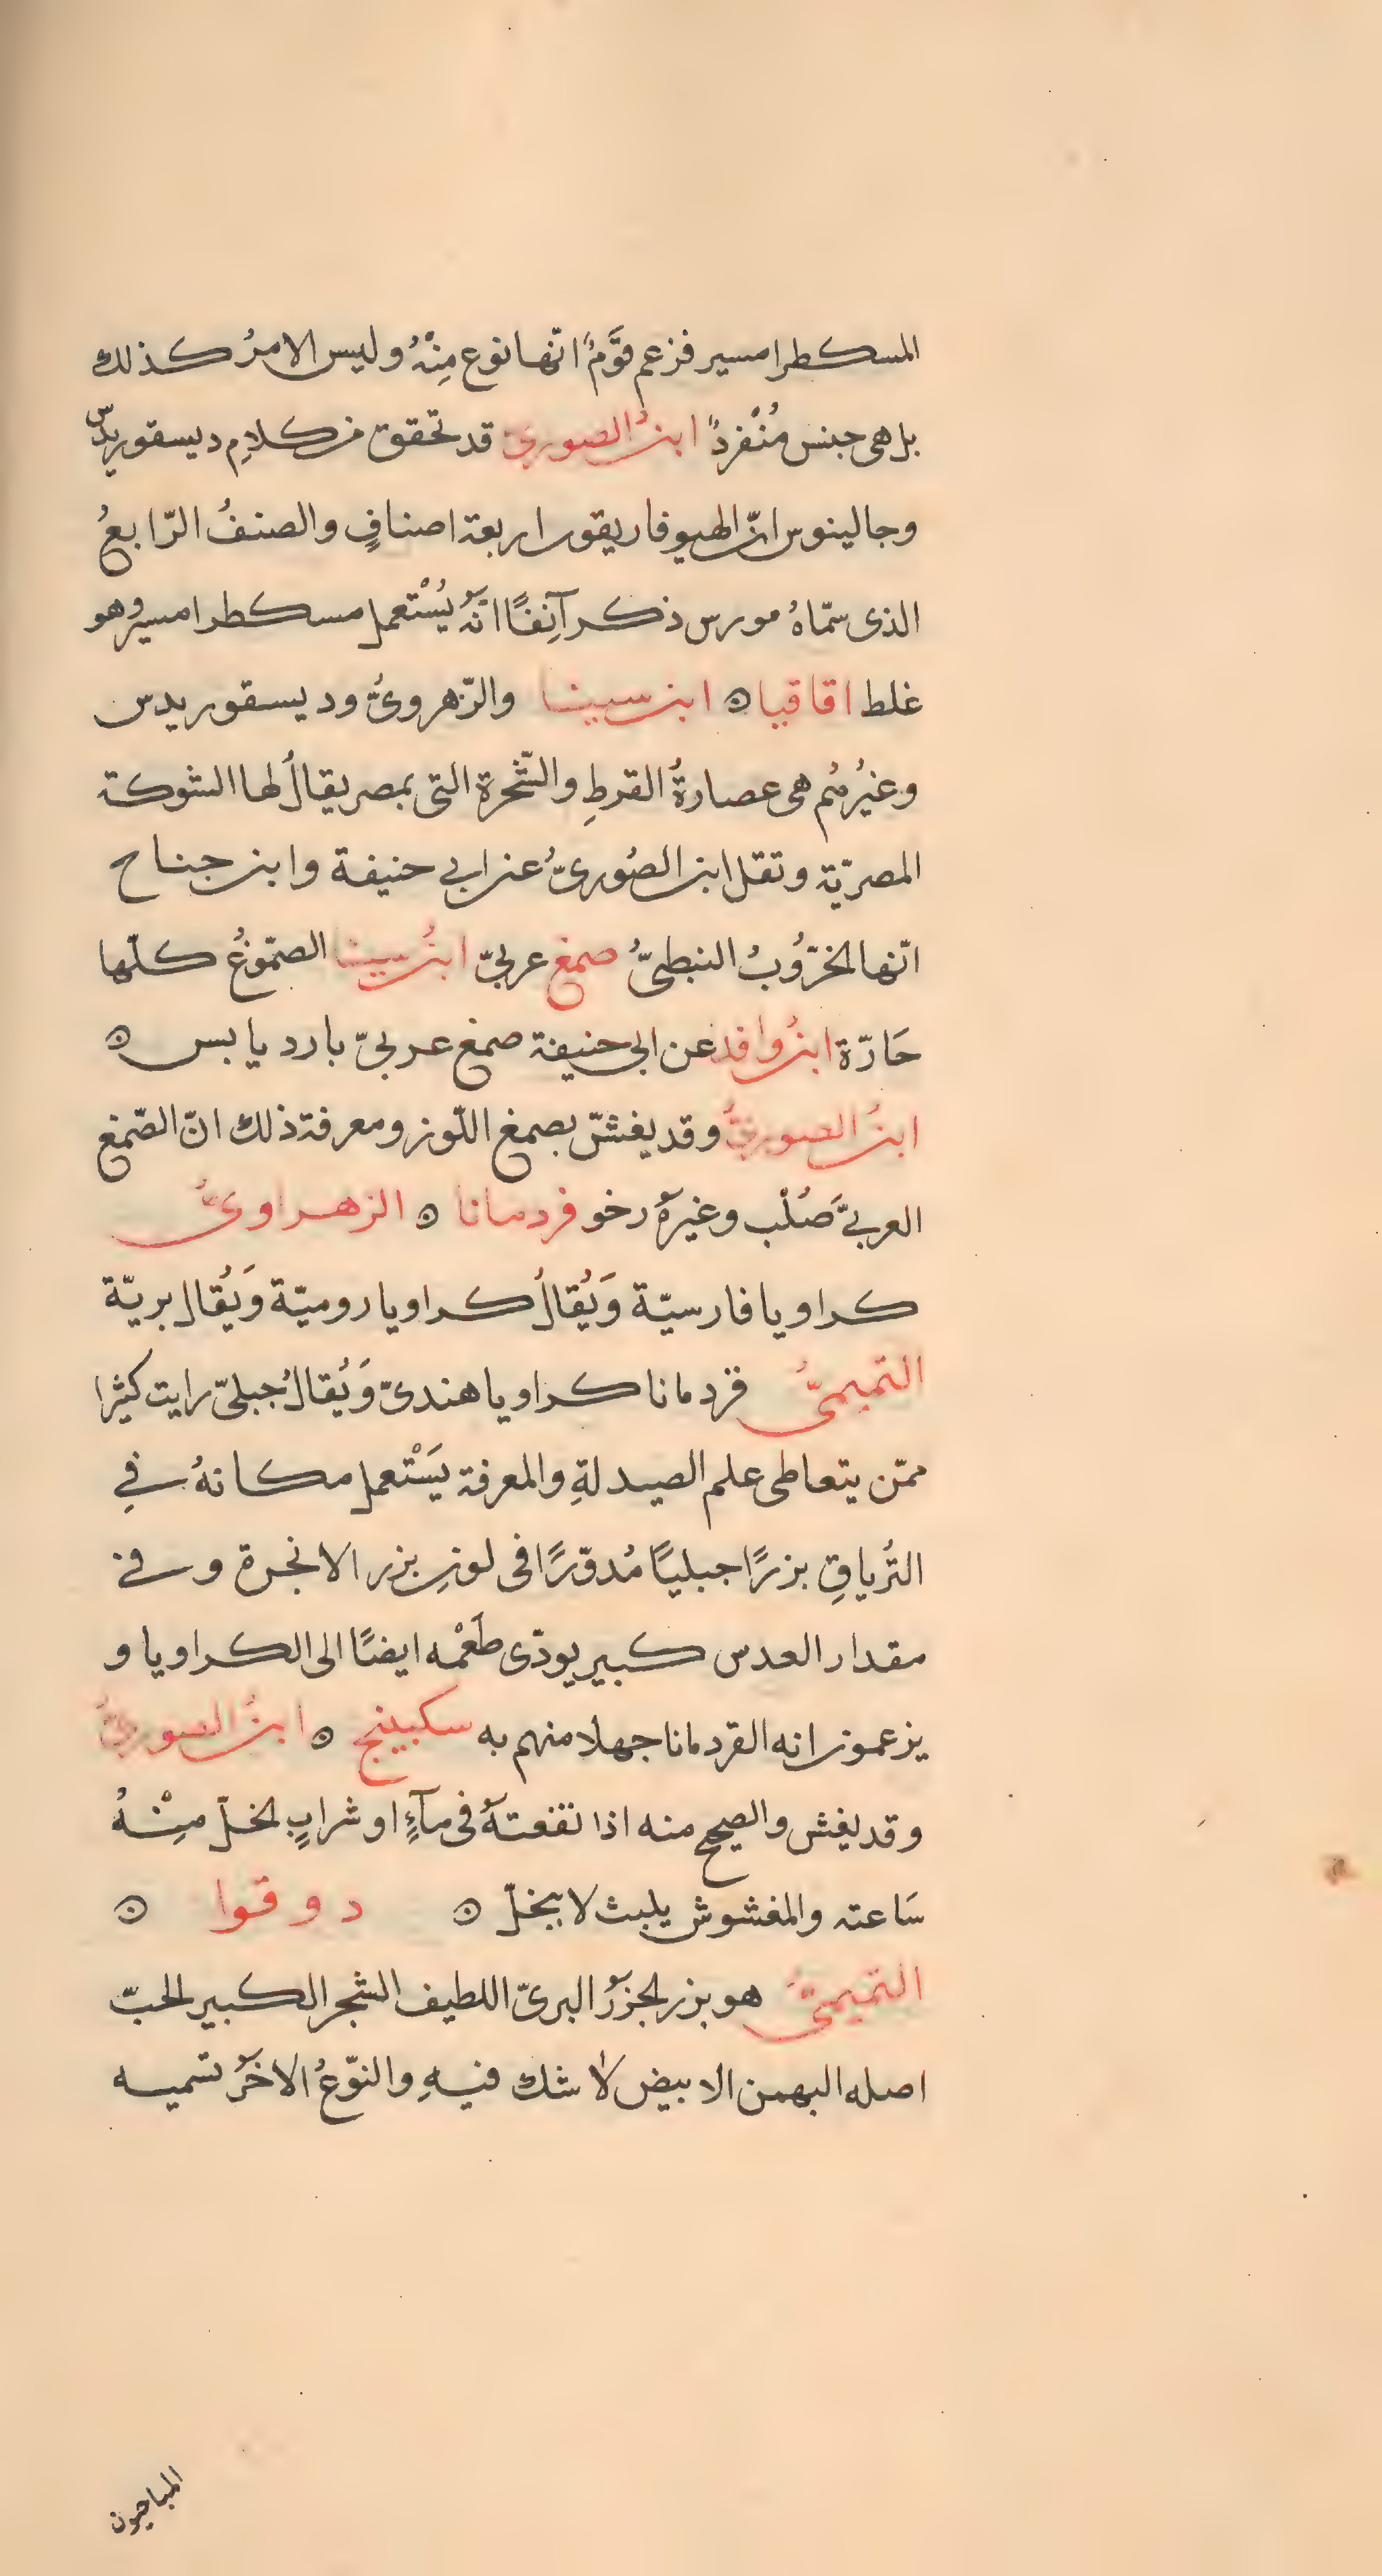 المسكطرامسير فزعم قَوّمٌ انّها نوع مِنْهُ وليس الامرُ كذلك
بل هى جنس مُنْفردٌ ابنُ الصورىّ قد تحقق من كلامِ ديسقوريدس
وجالينوس انّ الهيوفاريقون اربعة اصنافٍ والصنفُ الرّابعُ
الذى سمّاهُ مورس ذكر آنِفًا انّهُ يُسْتعمل مسكطرامسير وهو
غلط اقاقيا ۞ ابن سينا والزّهروىُّ وديسقوريدس
وغيرُهُم هى عصارةُ القرطِ والشّجرة التى بمصر يقالُ لها الشوكة
المصريّة ونقل ابن الصُورىُّ عن ابي حنيفة وابن جناح
انّها الخرّوبُ النبطىُّ صمغ عربىّ ابنُ سينا الصّموغُ كلّها
حَارّة ابنُ وافد عن ابى حنيفة صمغ عربىّ بارد يابس ۞
ابنُ الصورىُّ وقد يغشّ بصمغ اللّوز ومعرفة ذلك انّ الصّمغ
العربىَّ صُلْب وغيرهُ رخو قردمانا ۞ الزهراوىُّ
كراويا فارسيّة وَيُقالُ كراويا روميّة وَيُقال بريّة
التميمىُّ قردمانا كراويا هندىّ وَيُقالُ جبلىّ رايت كثيرا
ممّن يتعاطى علم الصيدلةِ والمعرفة يَسْتعمل مكانهُ فِي
التُرياقِ بزرًا جبليًا مُدوّرًا فى لونِ بزر الانجرة وفي
مقدار العدس كبير يودّى طَعْمه ايضًا الى الكراويا و
يزعمون انه القردمانا جهلا منهم به سكبينج ۞ ابنُ الصورىُّ
وقد يغش والصحيح منه اذا نقعتهُ فى مآءٍ او شرابٍ لخلّ مِنْهُ
سَاعته والمغشوش يلبث لا ينخلّ ۞ دوقوا ۞
التميمىُّ هو بزر الجزرُ البرىّ اللطيف الشجر الكبير الحبّ
اصله البهمن الابيض لا شك فيهِ والنوّعُ الاخرُ تسميه